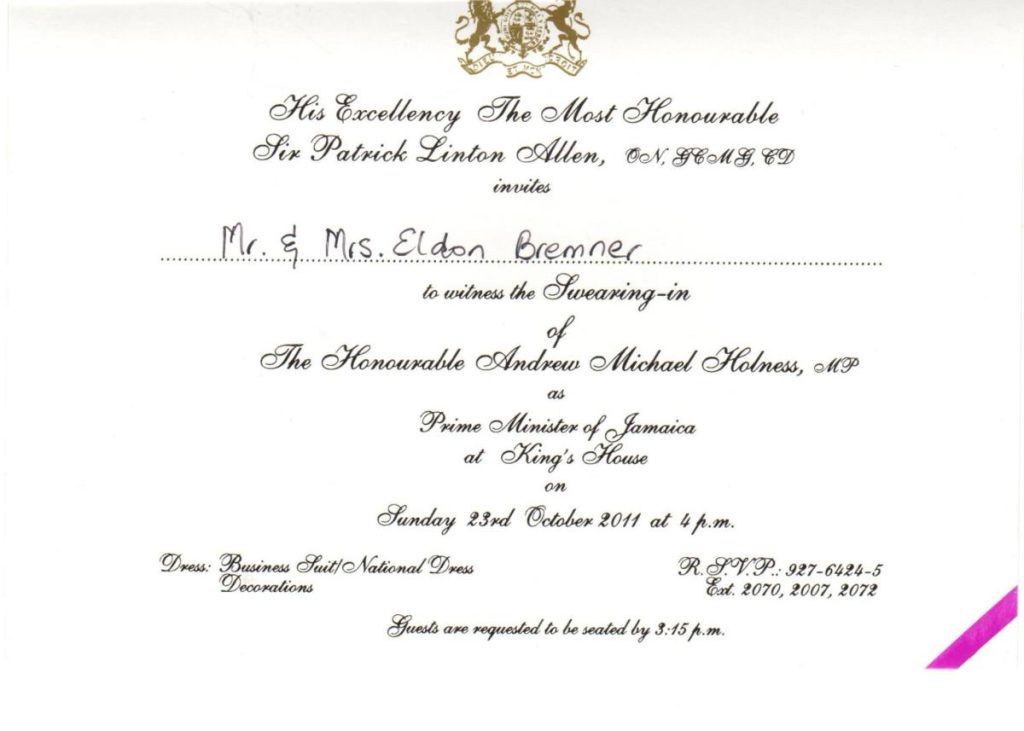 DIEU ET MON DROIT
His Excellency The Most Honourable
Sir Patrick Linton Allen, ON, GCMG, CD
invites
Mr. & Mrs. Eldon Bremner
to witness the Swearing-in
of
The Honourable Andrew Michael Holness, MP
as
Prime Minister of Jamaica
at King's House
on
Sunday 23rd October 2011 at 4 p.m.
Dress: Business Suit/National Dress
Decorations
R.S.V.P.: 927-6424-5
Ext. 2070, 2007, 2072
Guests are requested to be seated by 3:15 p.m.